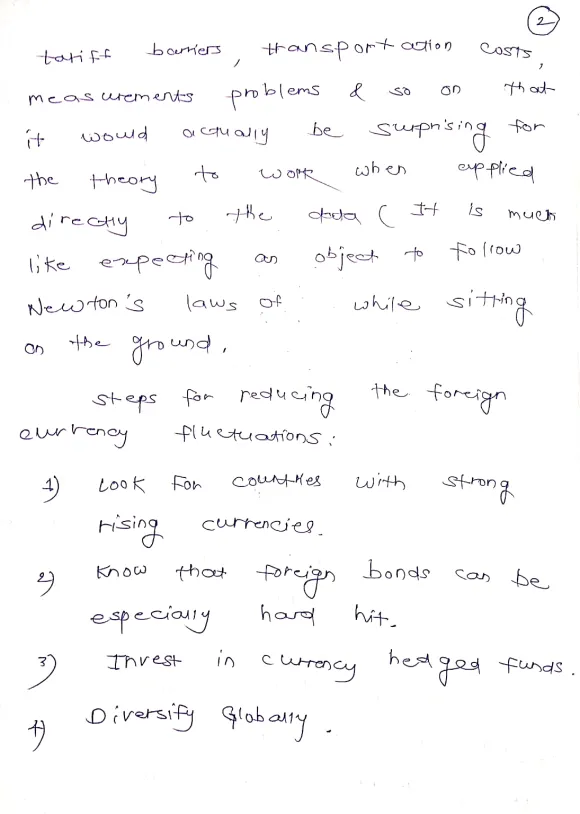 2
tariff barriers, transportation costs,
measurements problems & so on that
it would actually be surprising for
the theory to work when applied
directly to the data ( It is much
like expecting an object to follow
Newton's laws of while sitting
on the ground.
steps for reducing the foreign
currency fluctuations :
1) Look For countries with strong
rising currencies.
2) Know that foreign bonds can be
especially hard hit.
3) Invest in currency hedged funds.
4) Diversify Globally.